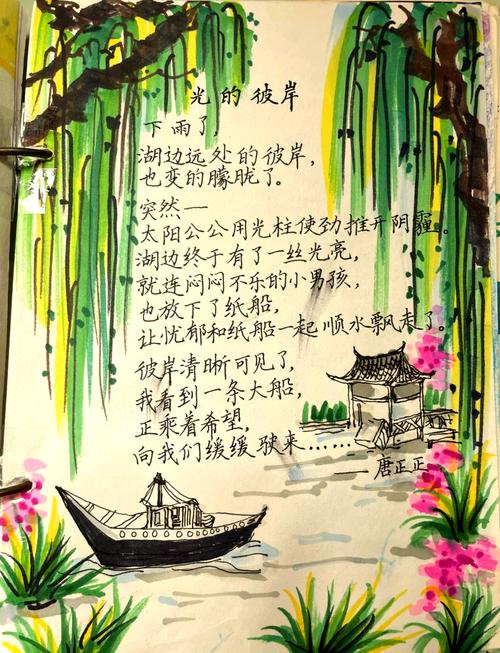 光的彼岸
下雨了，
湖边远处的彼岸，
也变的朦胧了。
突然一
太阳公公用光柱使劲推开阴霾。
湖边终于有了一丝光亮，
就连闷闷不乐的小男孩，
也放下了纸船，
让忧郁和纸船一起顺水飘走了。
彼岸清晰可见了，
我看到一条大船，
正乘着希望，
向我们缓缓驶来……
——唐正正